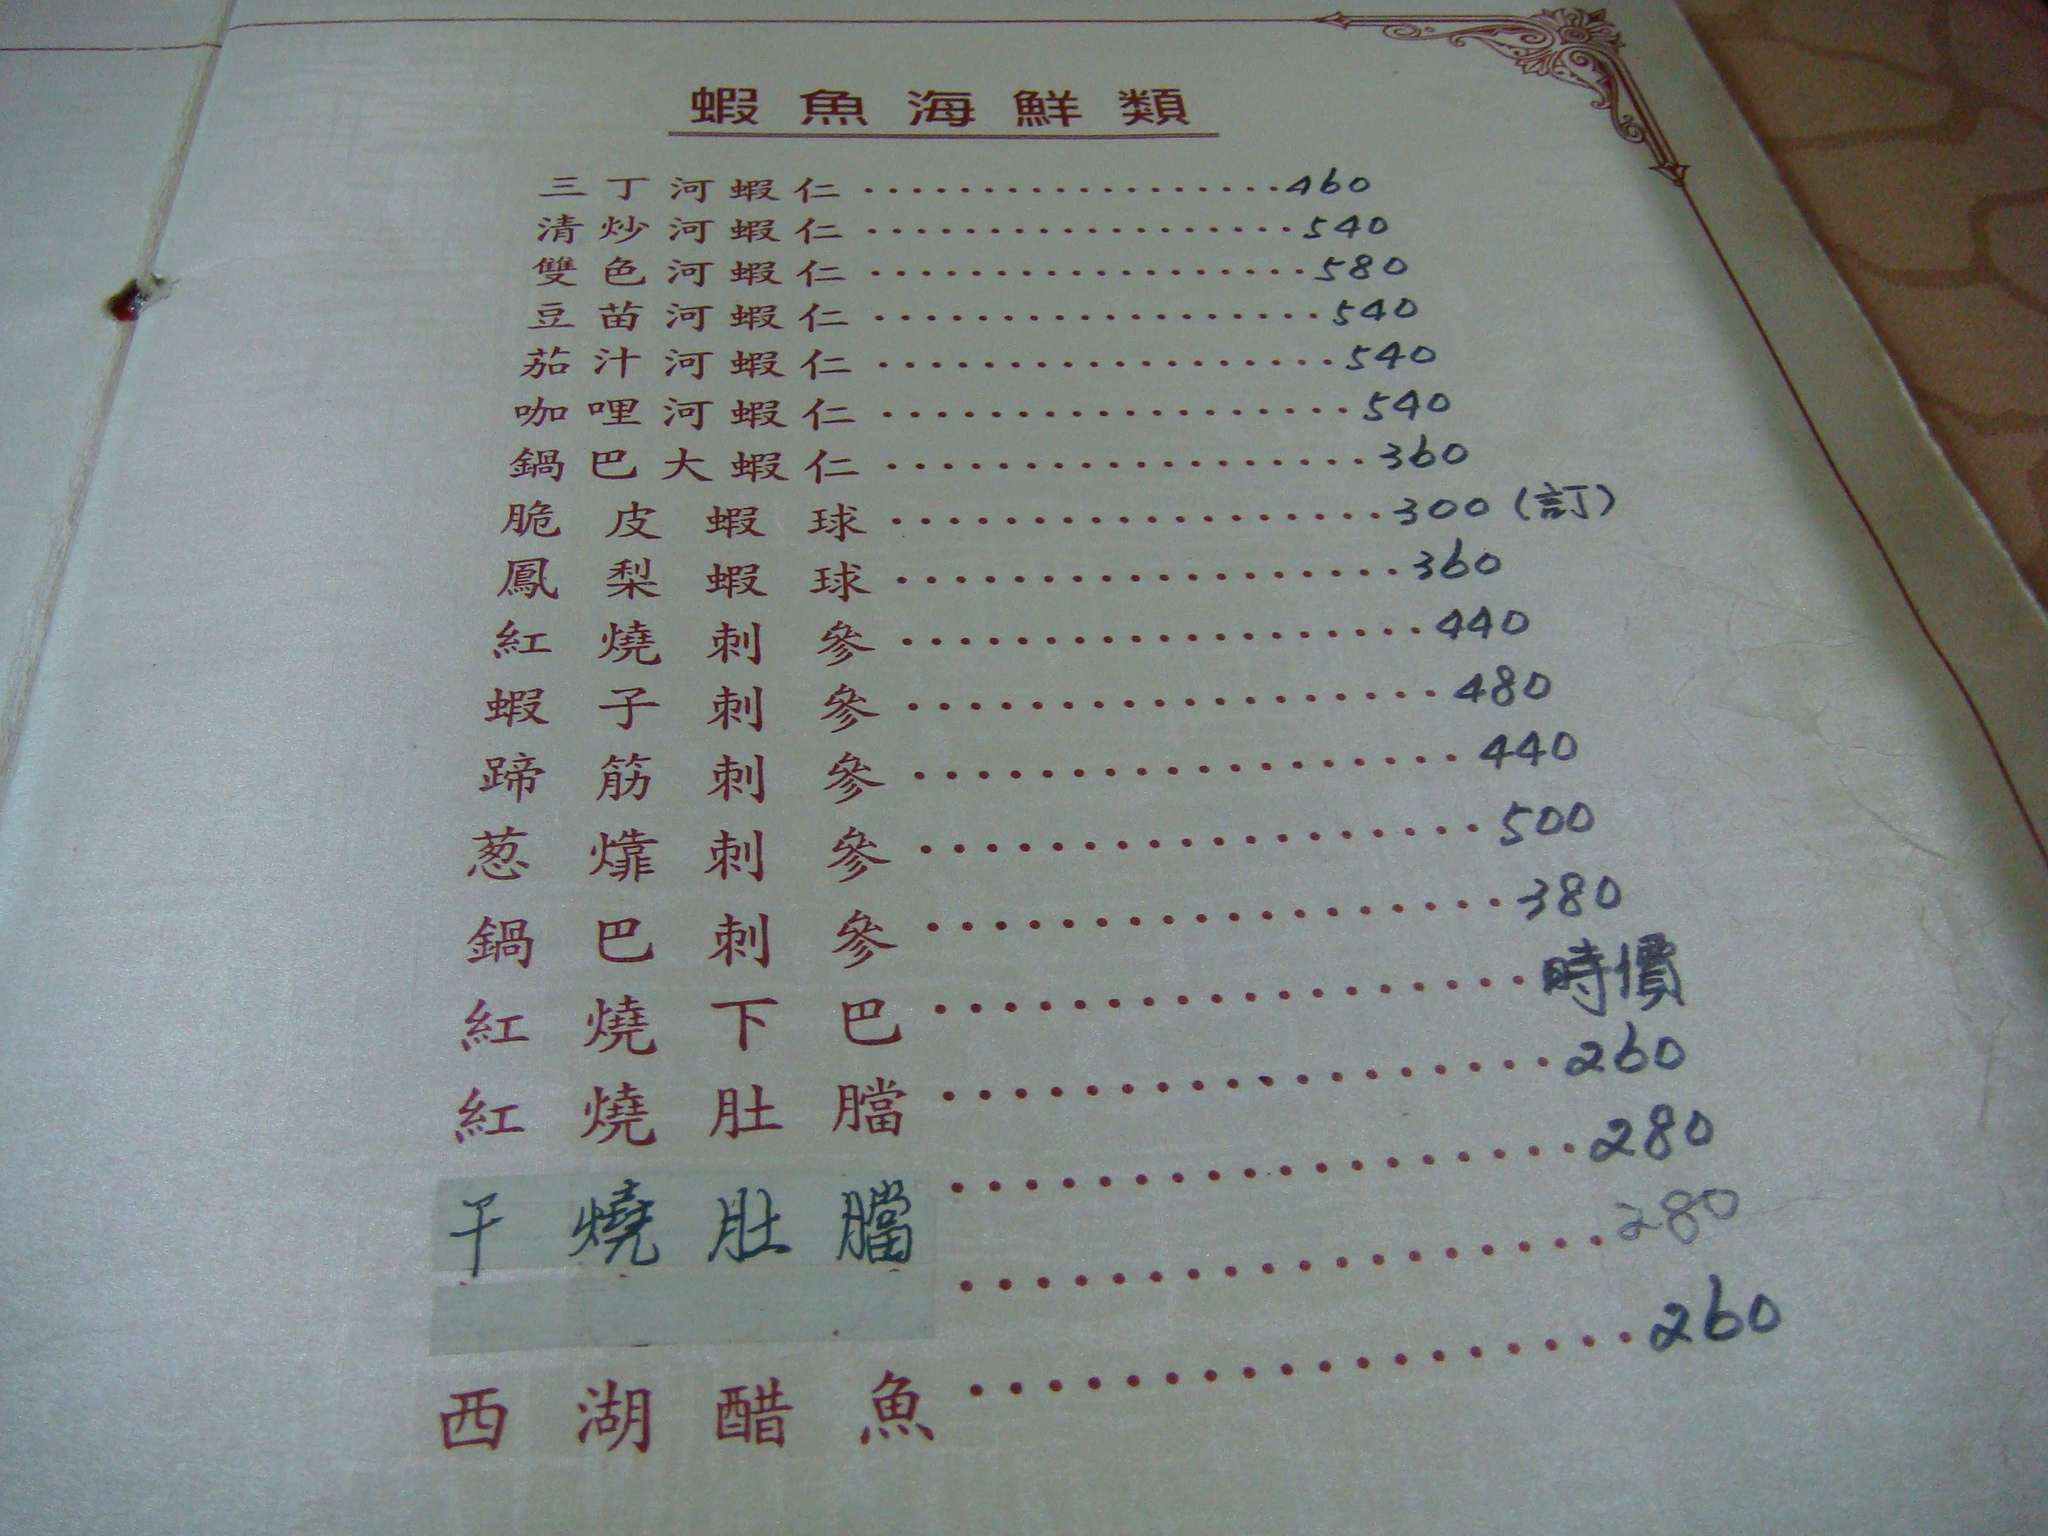 蝦魚海鮮類
三丁河蝦仁··················460
清炒河蝦仁··················540
雙色河蝦仁··················580
豆苗河蝦仁··················540
茄汁河蝦仁··················540
咖哩河蝦仁··················540
鍋巴大蝦仁··················360
脆皮蝦球··················300(訂)
鳳梨蝦球··················360
紅燒刺參··················440
蝦子刺參··················480
蹄筋刺參··················440
葱㸆刺參··················500
鍋巴刺參··················380
紅燒下巴··················時價
紅燒肚··················260
干燒肚··················280
··················280
西湖醋魚··················260